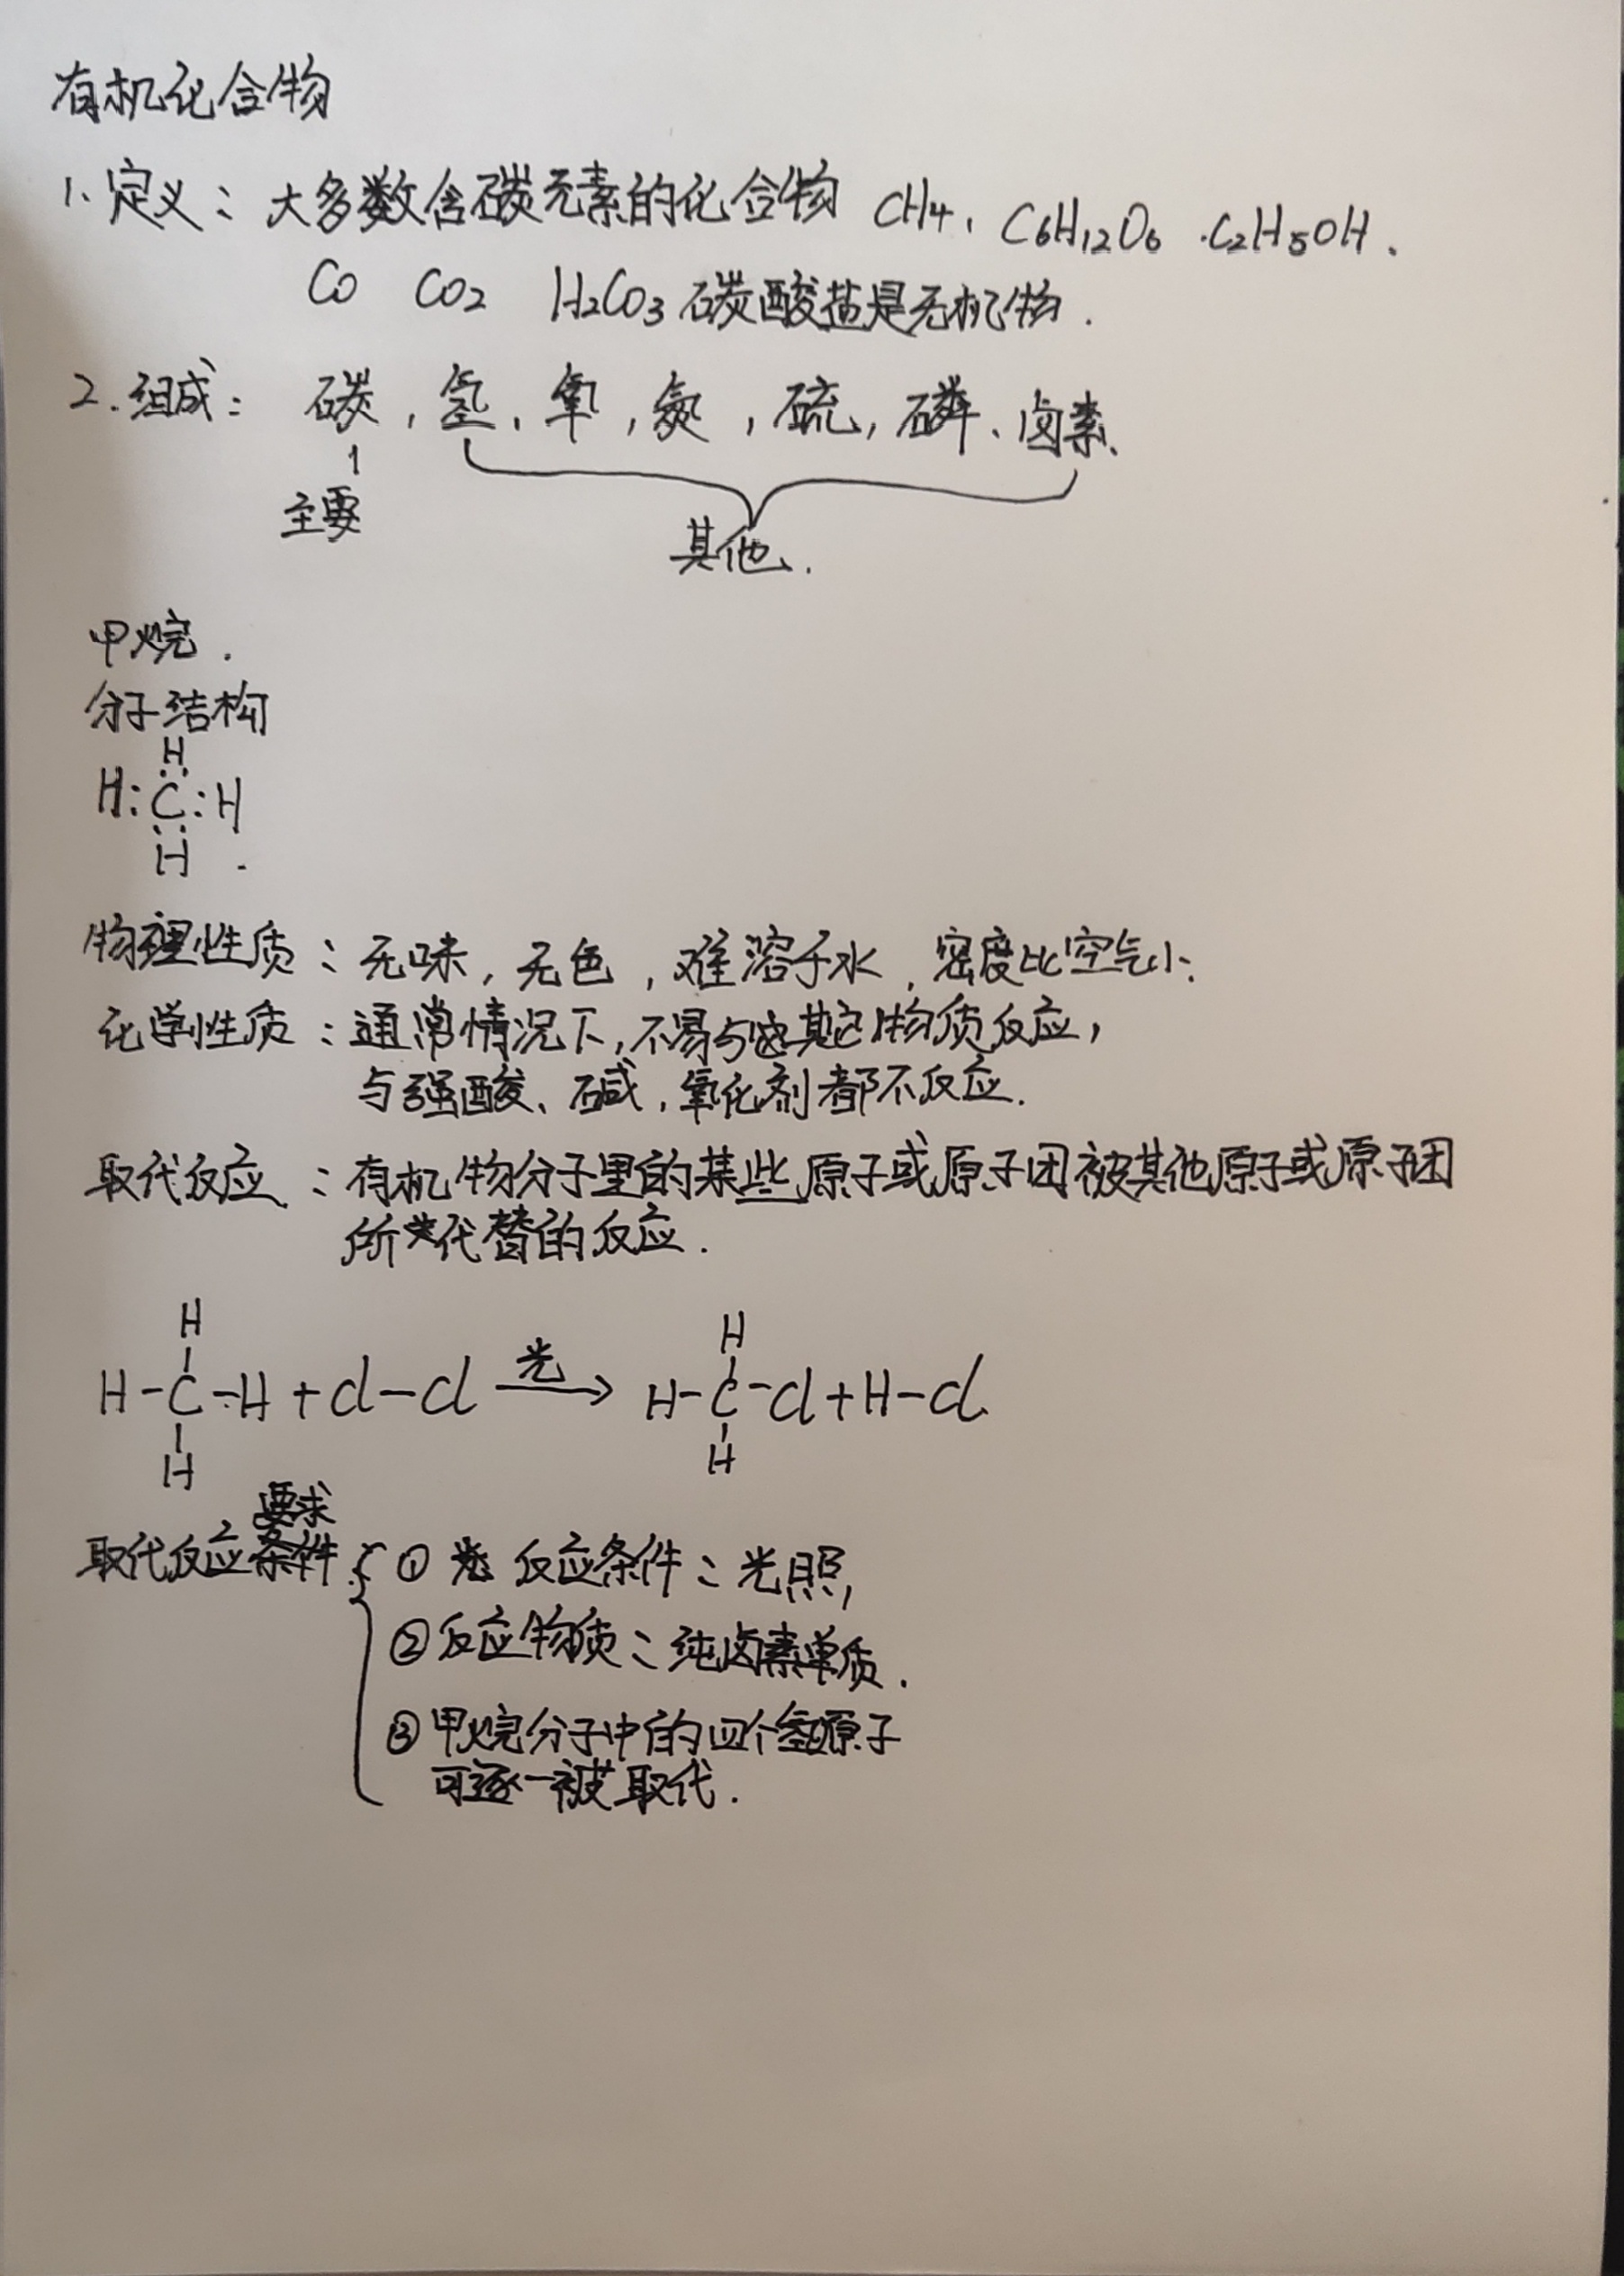 有机化合物
1、定义：大多数含碳元素的化合物 CH4、C6H12O6、C2H5OH.
CO CO2 H2CO3 碳酸盐是无机物.
2.组成：碳，氢、氧，氮，硫，磷、卤素、
主要
其他.
甲烷.
分子结构
H
H:C:H
H.
物理性质：无味，无色，难溶于水，密度比空气小、
化学性质：通常情况下，不易与其它物质反应，
与强酸、碱，氧化剂都不反应.
取代反应：有机物分子里的某些原子或原子团被其他原子或原子团
所代替的反应.
H H
H-C-H+Cl-Cl 光→ H-C-Cl+H-Cl
H H
要求
取代反应条件 ① 反应条件：光照，
②反应物质：纯卤素单质.
③甲烷分子中的四个氢原子
可逐一被取代.